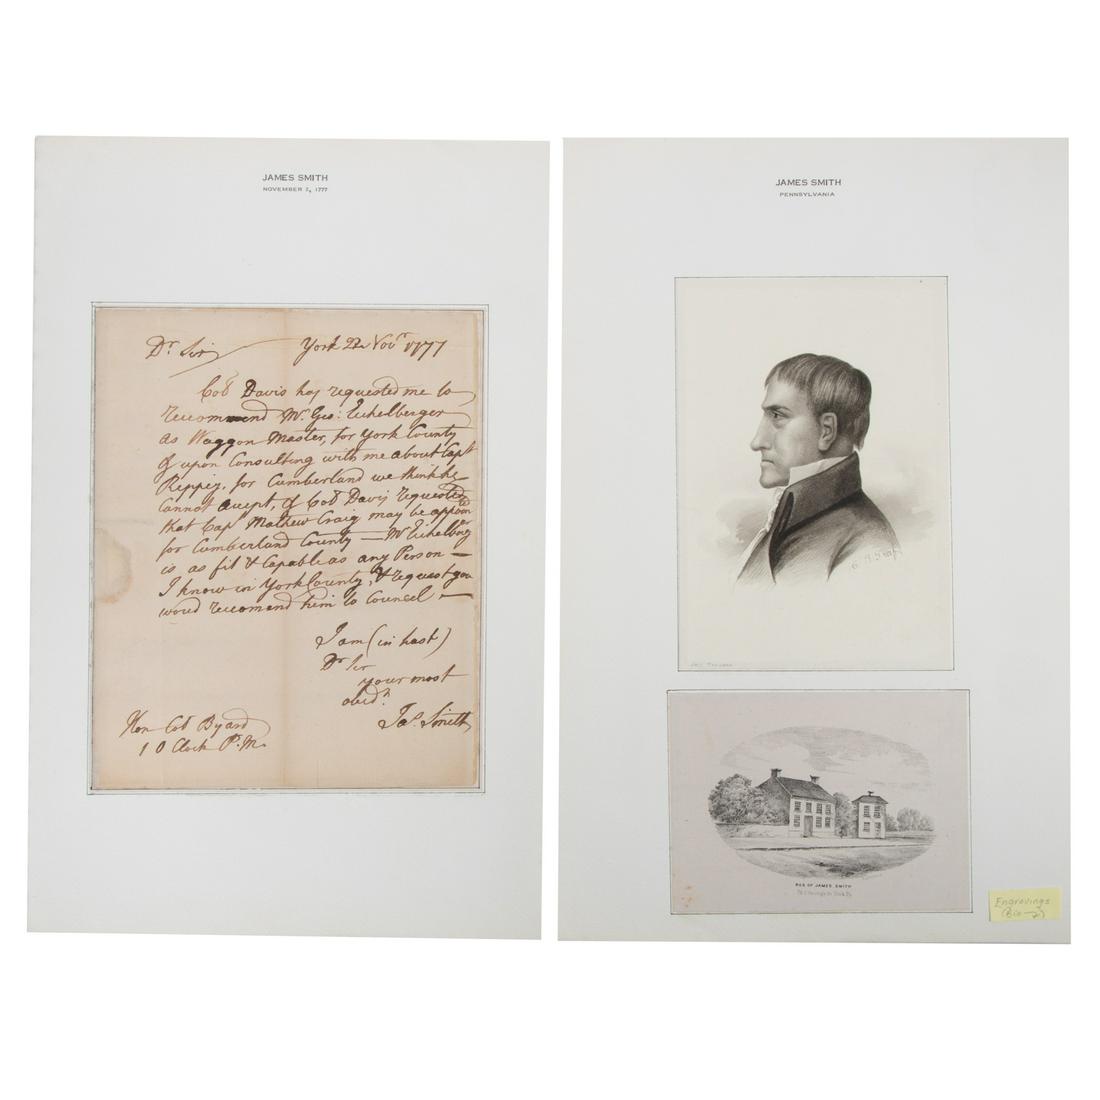 JAMES SMITH
NOVEMBER 2, 1777
Dr. Sir York 22 Novr 1777
Col Davis has requested me to
recommend Mr. Geo: Eichelberger
as Waggon Master, for York County
& upon Consulting with me about Capt
Rippey, for Cumberland we think he
Cannot accept, & Col Davis requested
that Cap Mathew Craig may be
for Cumberland County — Mr
is as fit & Capable as any Person —
I know in York County, & request you
woud recomend him to Councel —
I am (in hast)
Dr Sir
your most
obedt.
Jas. Smith
Hon Col Byard
1 O Clock P. M.
JAMES SMITH
PENNSYLVANIA
RES OF JAMES SMITH
Engravings
(Bio →)